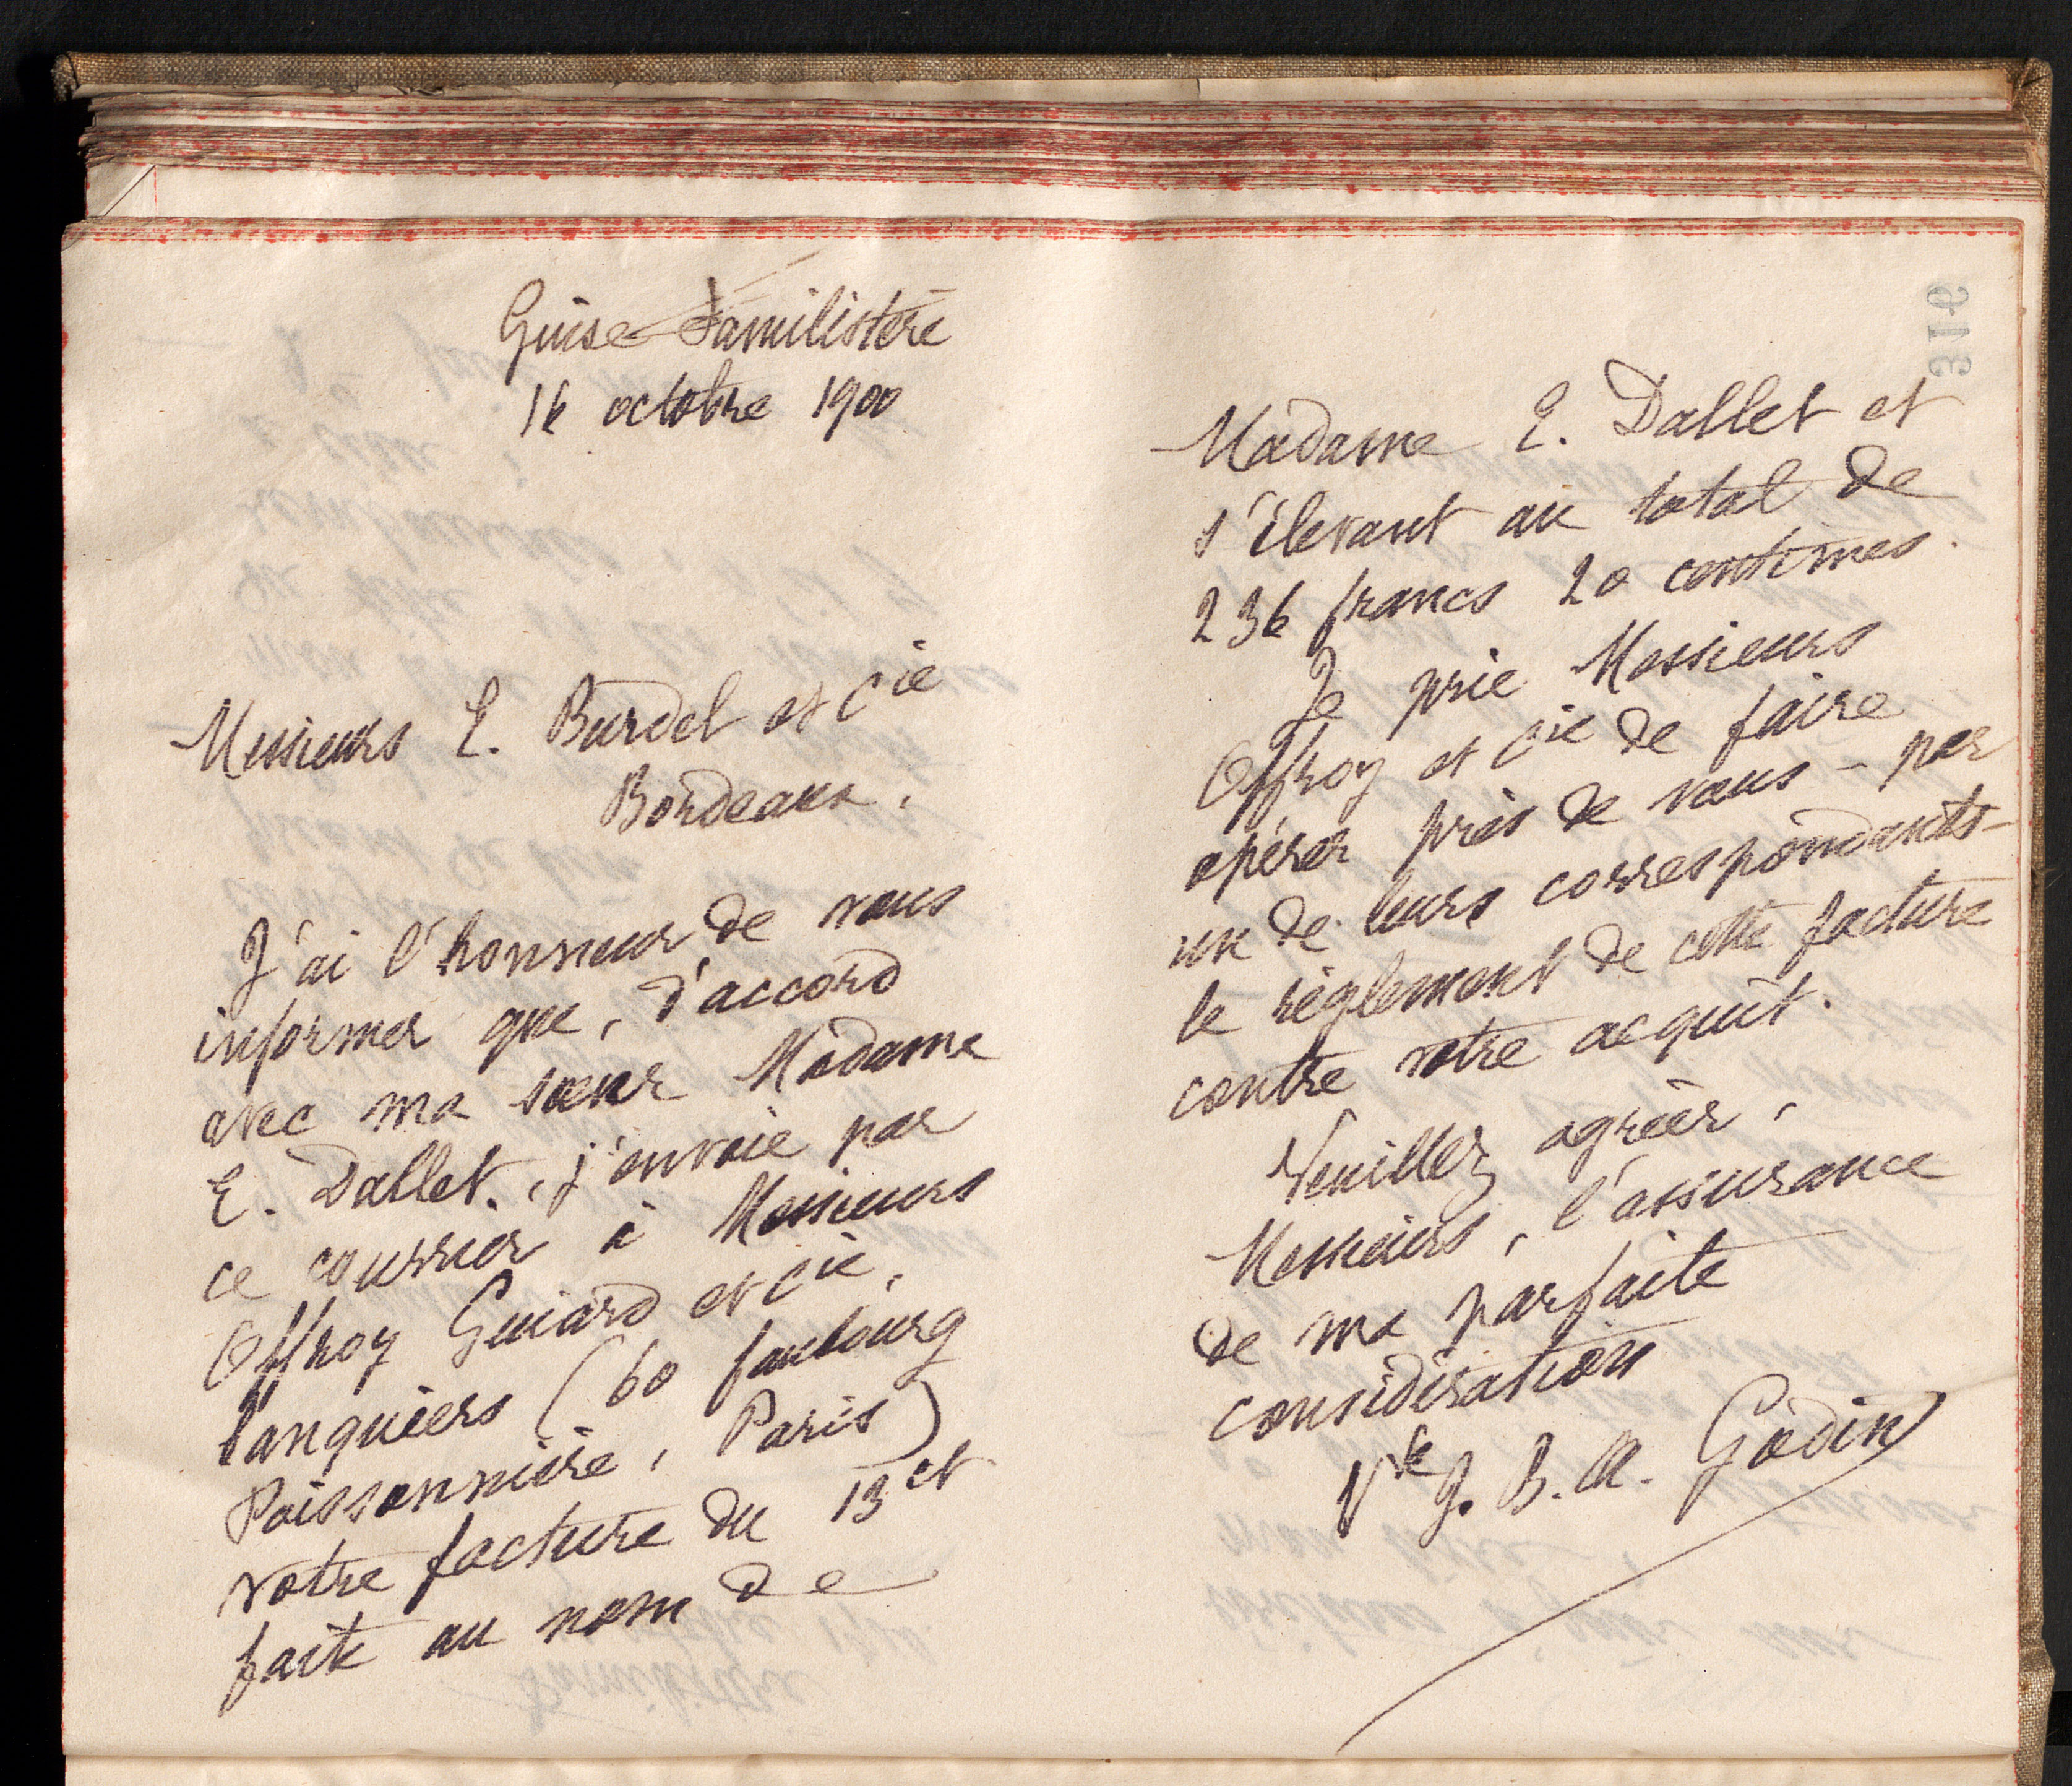 Guise Familistère
16 octobre 1900
Messieurs E. Burdel et Cie
Bordeaux.
J'ai l'honneur de vous
informer que, d'accord
avec ma sœur Madame
E. Dallet, j'envoie par
ce courrier à Messieurs
Offroy Guiard et Cie,
banquiers (60 faubourg
Poissonnière, Paris)
votre facture du 13 ct
faite au nom de
316
Madame E. Dallet et
s'élevant au total de
236 francs 20 centimes.
Je prie Messieurs
Offroy et Cie de faire
opérer près de vous - par
un de leurs correspondants -
le règlement de cette facture
contre votre acquit.
Veuillez agréer,
Messieurs, l'assurance
de ma parfaite
considération
Vve J. B. A. Godin